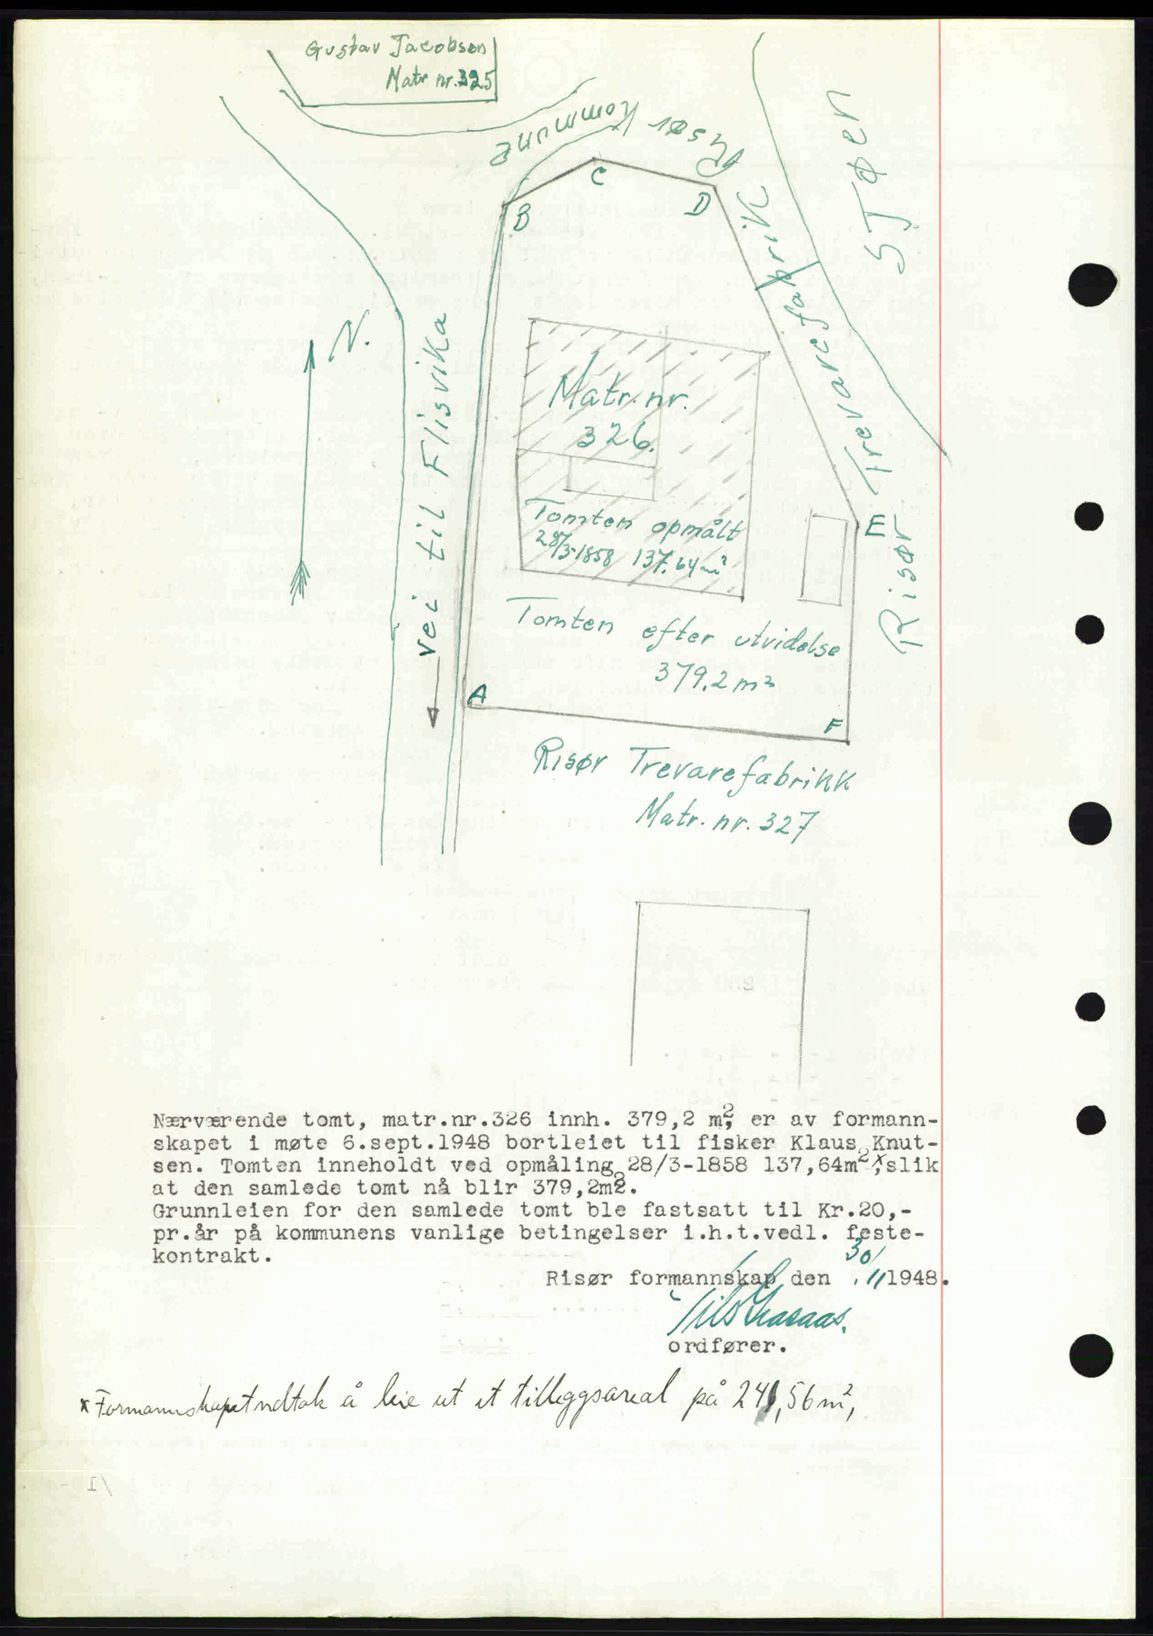 Gustav Jacobsen
Matr nr. 325
Risør Kommune
SJøen
B
C
D
N.
vei til Flisvika
Risør Trevarefabrik
Matr. nr.
326.
Tomten opmålt
28/3-1858 137.64 m²
E
Tomten efter utvidelse
379.2 m²
A
F
Risør Trevarefabrikk
Matr. nr. 327
Nærværende tomt, matr.nr.326 innh. 379,2 m², er av formann-
skapet i møte 6.sept.1948 bortleiet til fisker Klaus Knut-
sen. Tomten inneholdt ved opmåling 28/3-1858 137,64m²,x slik
at den samlede tomt nå blir 379,2m².
Grunnleien for den samlede tomt ble fastsatt til Kr.20,-
pr.år på kommunens vanlige betingelser i.h.t.vedl. feste-
kontrakt.
Risør formannskap den 30/11 1948.
ordfører.
x Formannskapet vedtok å leie ut et tilleggsareal på 241,56 m²,